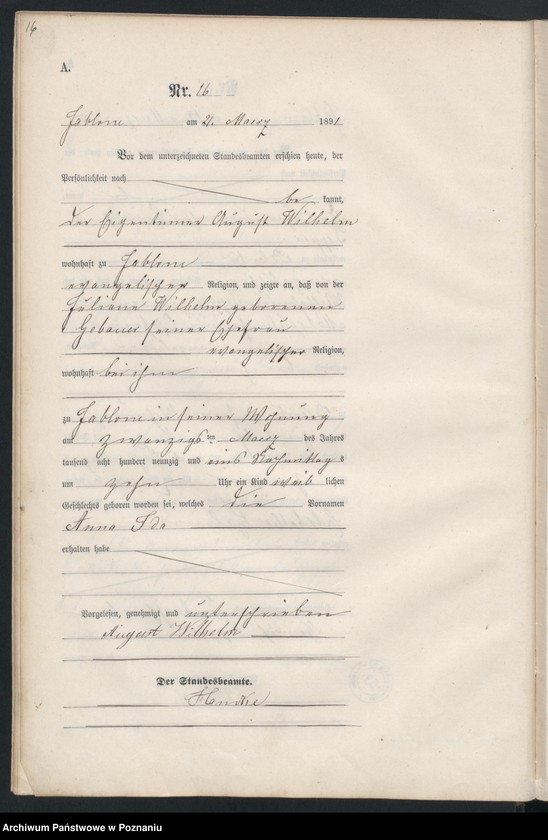 16
A.
Nr. 16
Jablone am 21. Maerz 1891
Vor dem unterzeichneten Standesbeamten erschien heute, der
Persönlichkeit nach
be kannt,
der Eigentümer August Wilhelm
wohnhaft zu Jablone
evangelischer Religion, und zeigte an, daß von der
Juliane Wilhelm geborenen
Gebauer seiner Ehefrau
evangelischer Religion,
wohnhaft bei ihm
zu Jablone in seiner Wohnung
am zwanzigsten Maerz des Jahres
tausend acht hundert neunzig und eins Nachmittags
um zehn Uhr ein Kind weib lichen
Geschlechts geboren worden sei, welches die Vornamen
Anna Ida
erhalten habe
Vorgelesen, genehmigt und unterschrieben
August Wilhelm
Der Standesbeamte.
Archiwum Państwowe w Poznaniu